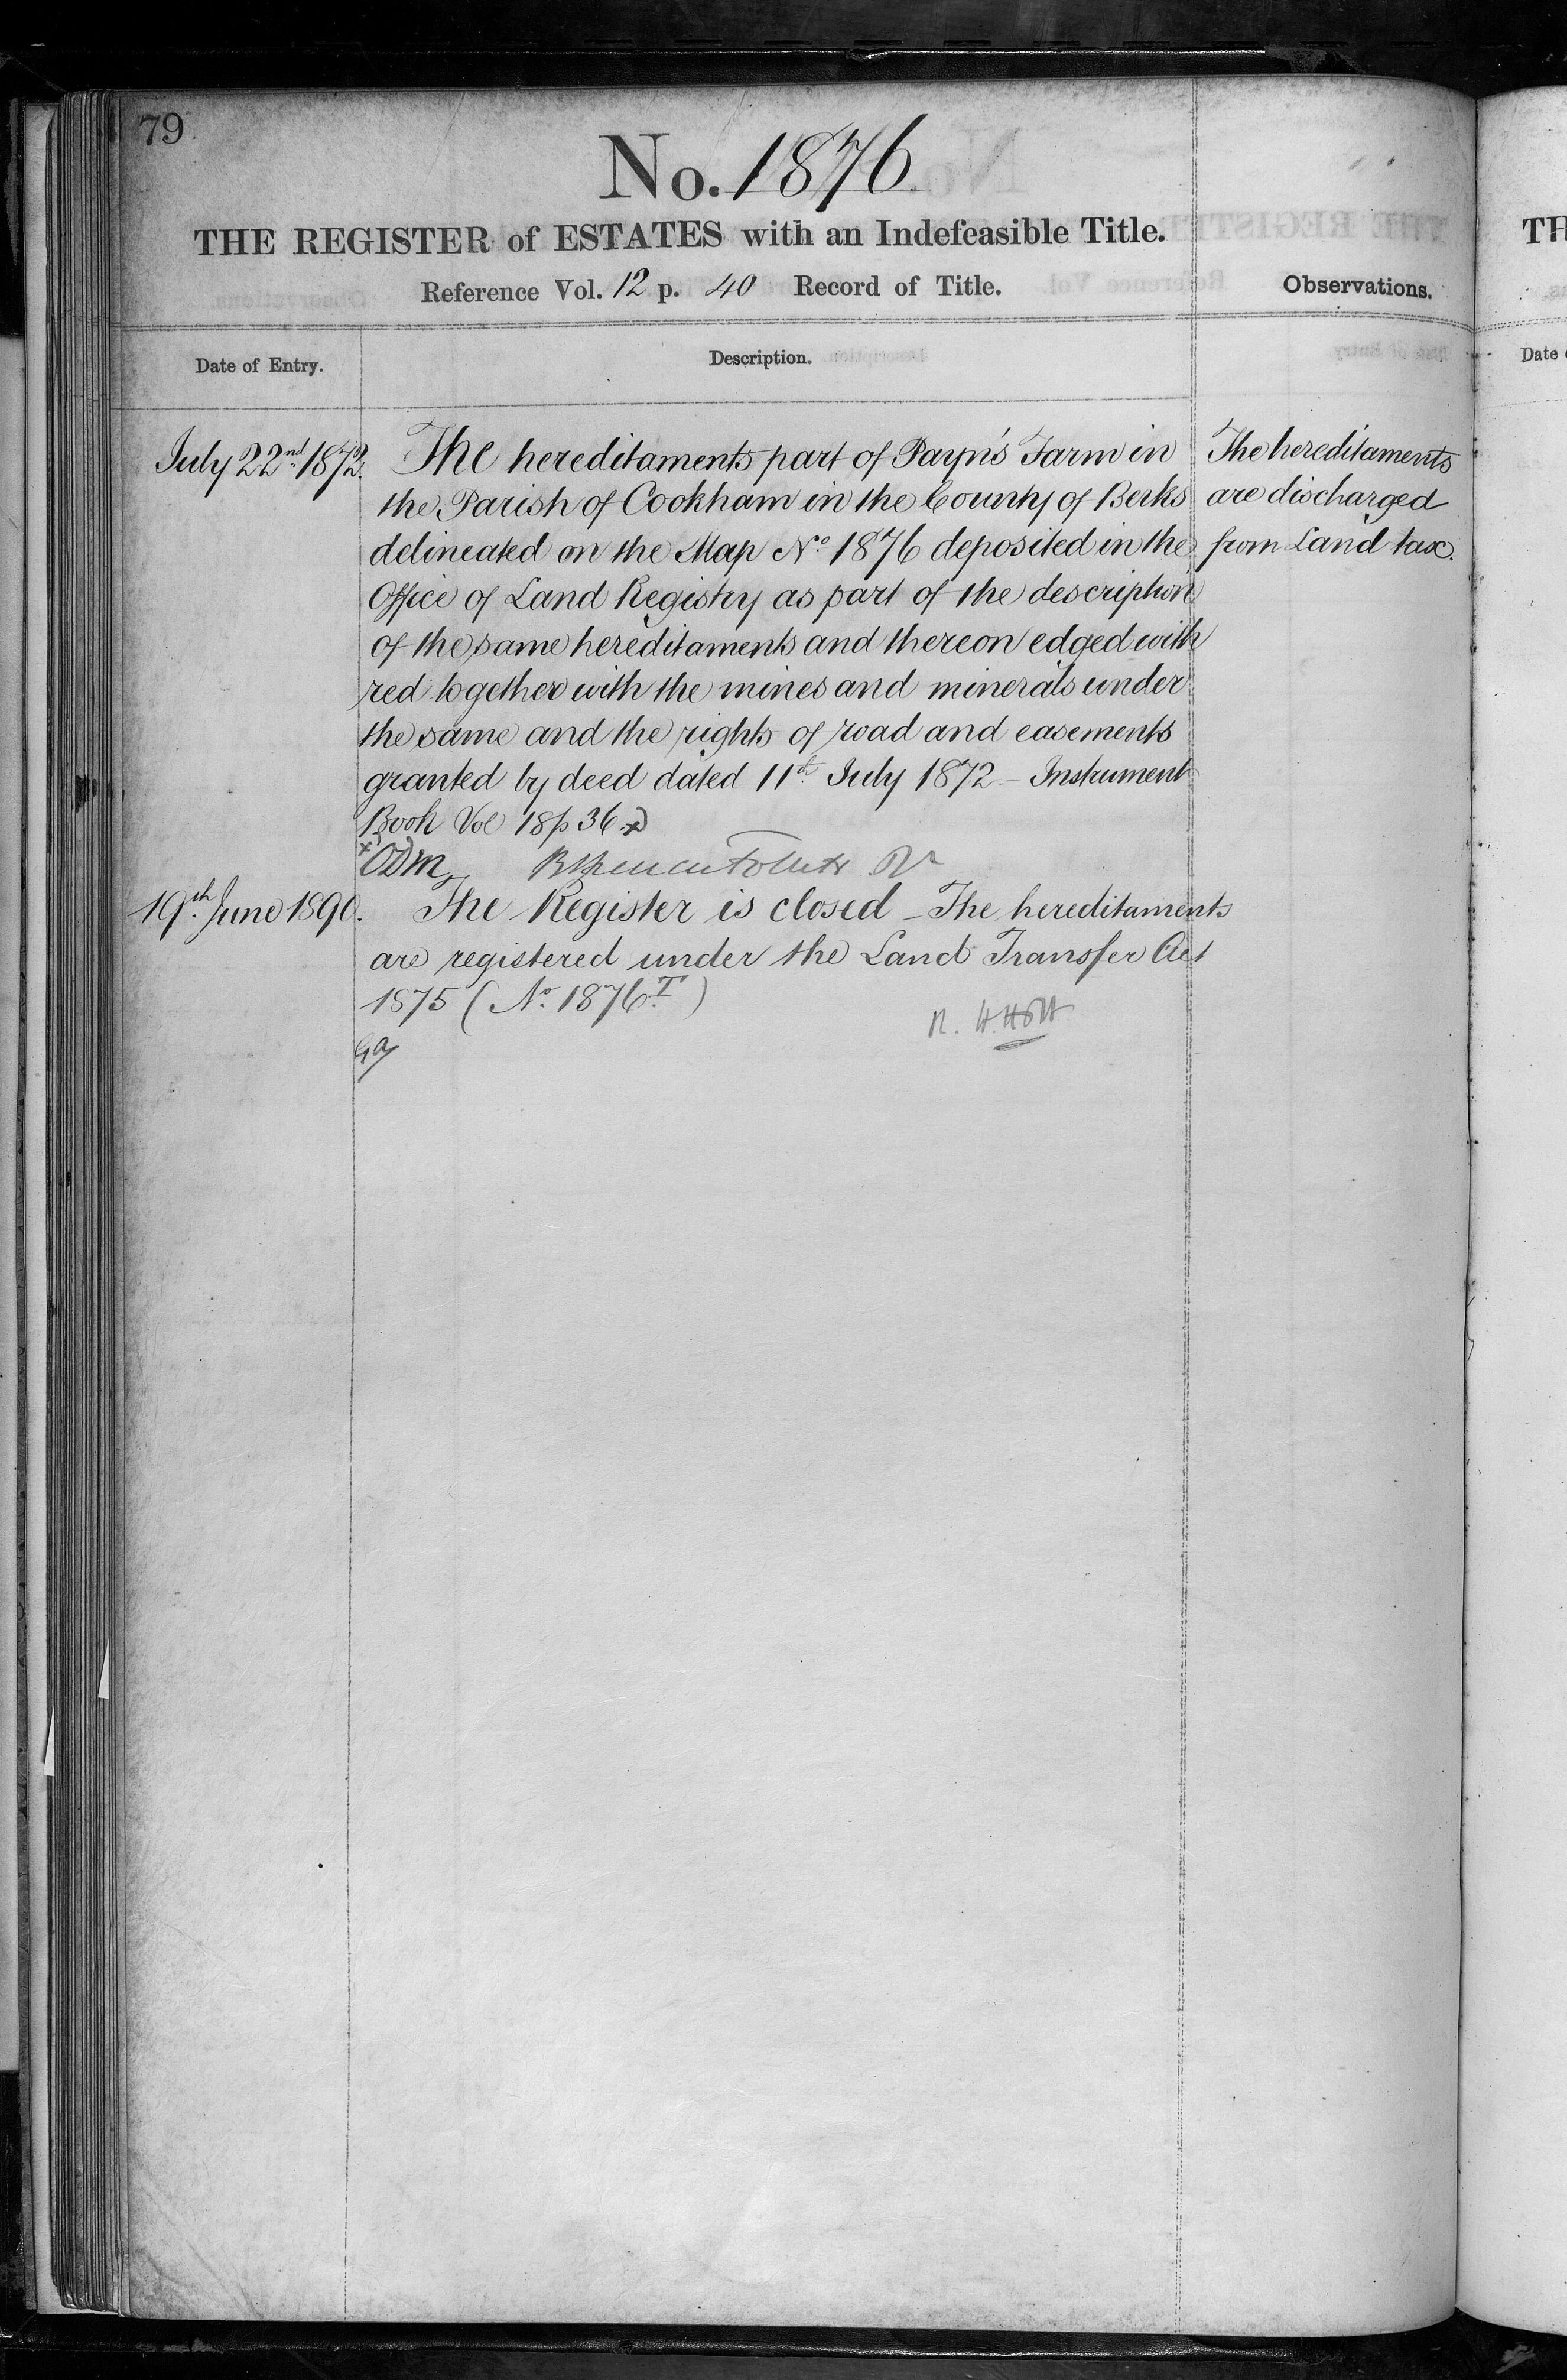 79
No. 1876
THE REGISTER of ESTATES with an Indefeasible Title.
Reference Vol. 12 p. 40 Record of Title.
Observations.
Date of Entry.
Description.
July 22nd. 1872.
The hereditaments part of Payn's Farm in
the Parish of Cookham in the County of Berks
delineated on the Map No. 1876 deposited in the
Office of Land Registry as part of the description
of the same hereditaments and thereon edged with
red together with the mines and minerals under
the same and the rights of road and easements
granted by deed dated 11th. July 1872 - Instrument
Book Vol 18 p 36
The hereditaments
are discharged
from Land tax.
ODM
19th. June 1890.
The Register is closed - The hereditaments
are registered under the Land Transfer Act
1875 (No. 1876T.)
R. H. Holt
TH
Date